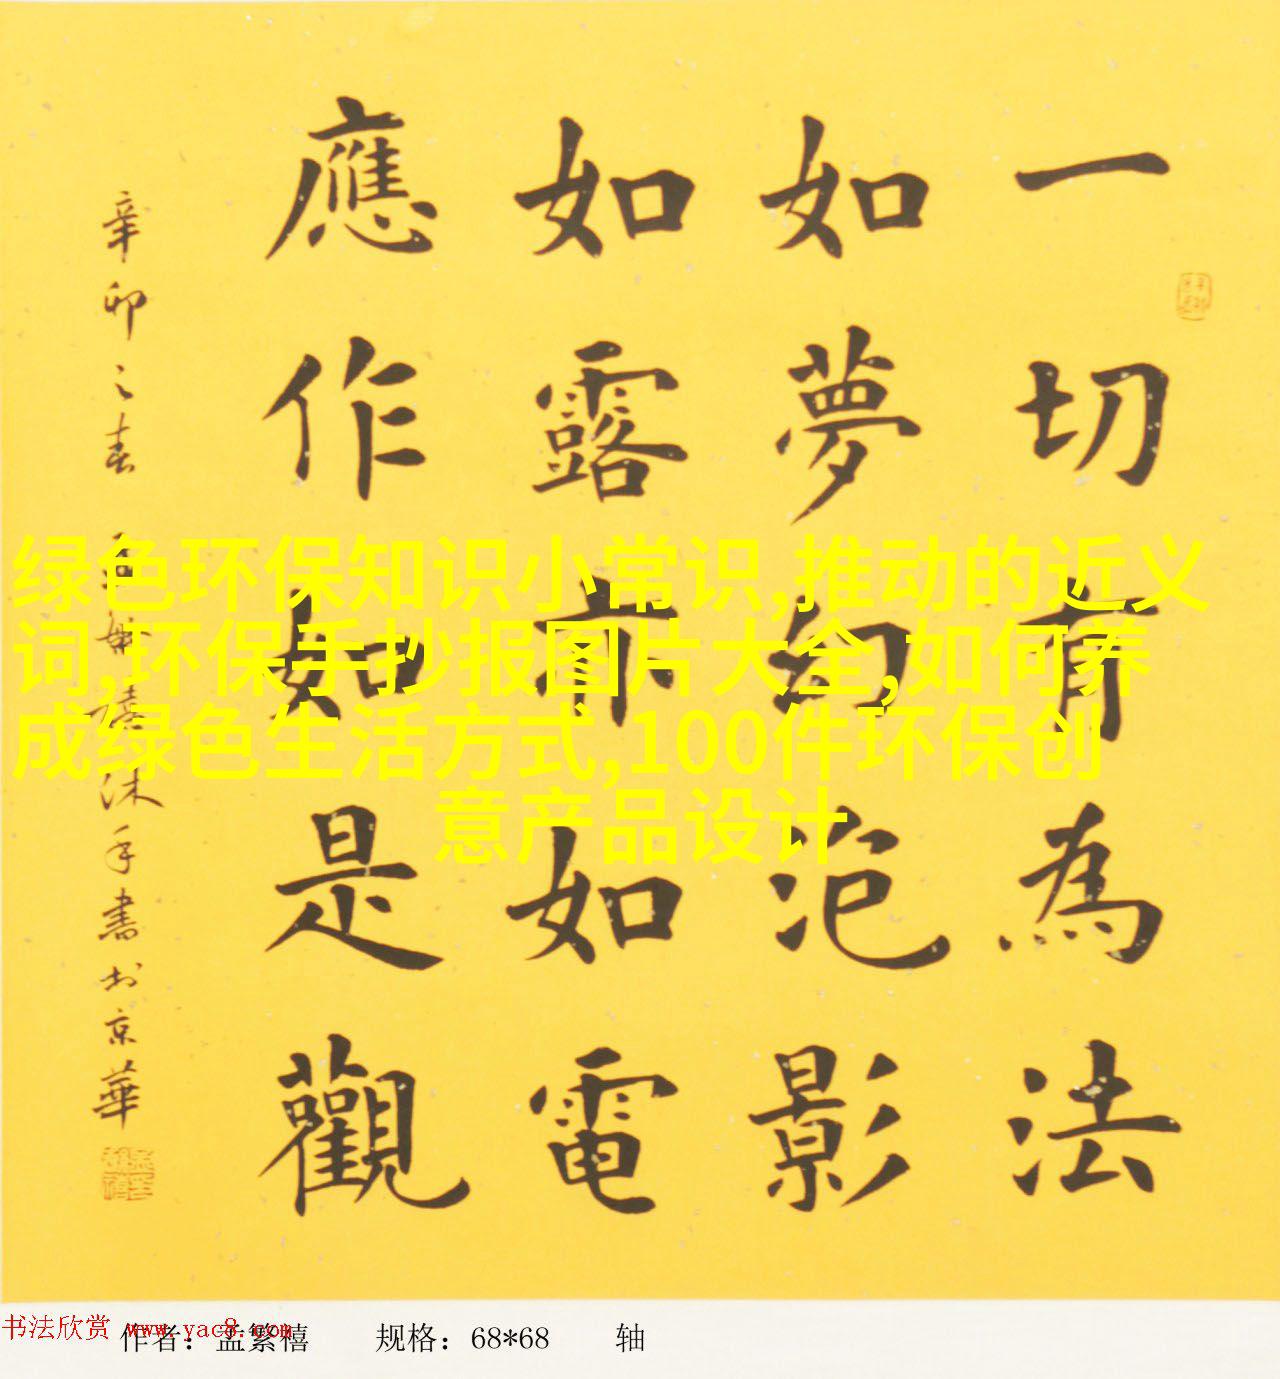 一切有為法
如夢幻泡影
如露亦如電
應作如是觀
辛卯之春 孟繁禧沐手書於京華
绿色环保知识小常识,推动的近义
词,环保手抄报图片大全,如何养
成绿色生活方式,100件环保创
意产品设计
书法欣赏 www.yac8.com
作者：孟繁禧 规格：68*68 轴